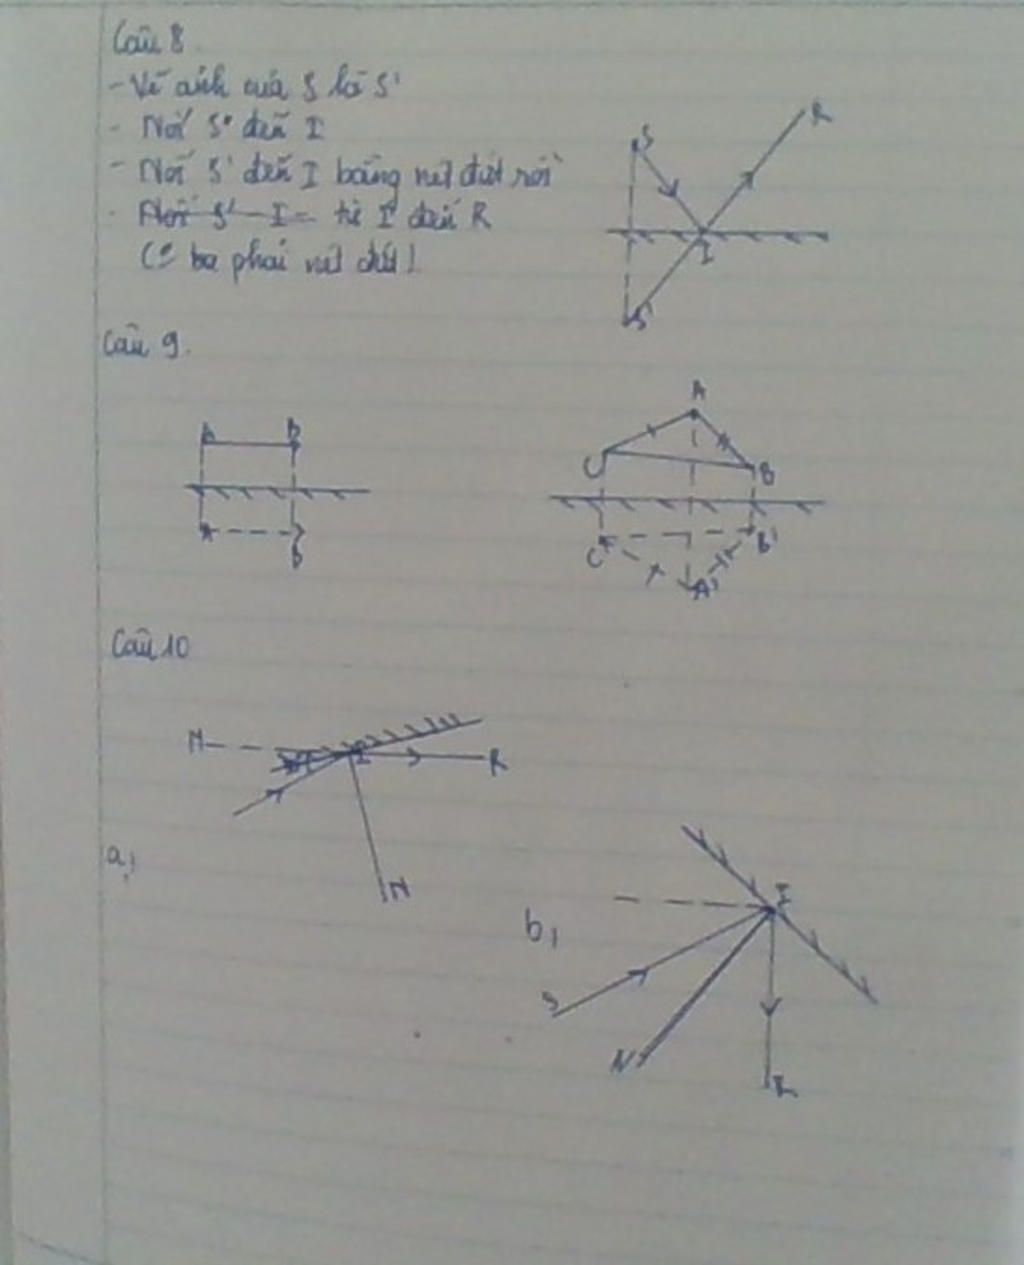 Câu 8
- Vẽ ảnh của S là S'
- Nối S đến I
- Nối S' đến I bằng nét đứt rồi
- Nối S' - I - từ I đến R
phải nét đứt)
S
R
I
S'
Câu 9.
A
B
A
C
B
B
C'
B'
A'
Câu 10
M
I
R
a,
N
I
b,
S
N
R